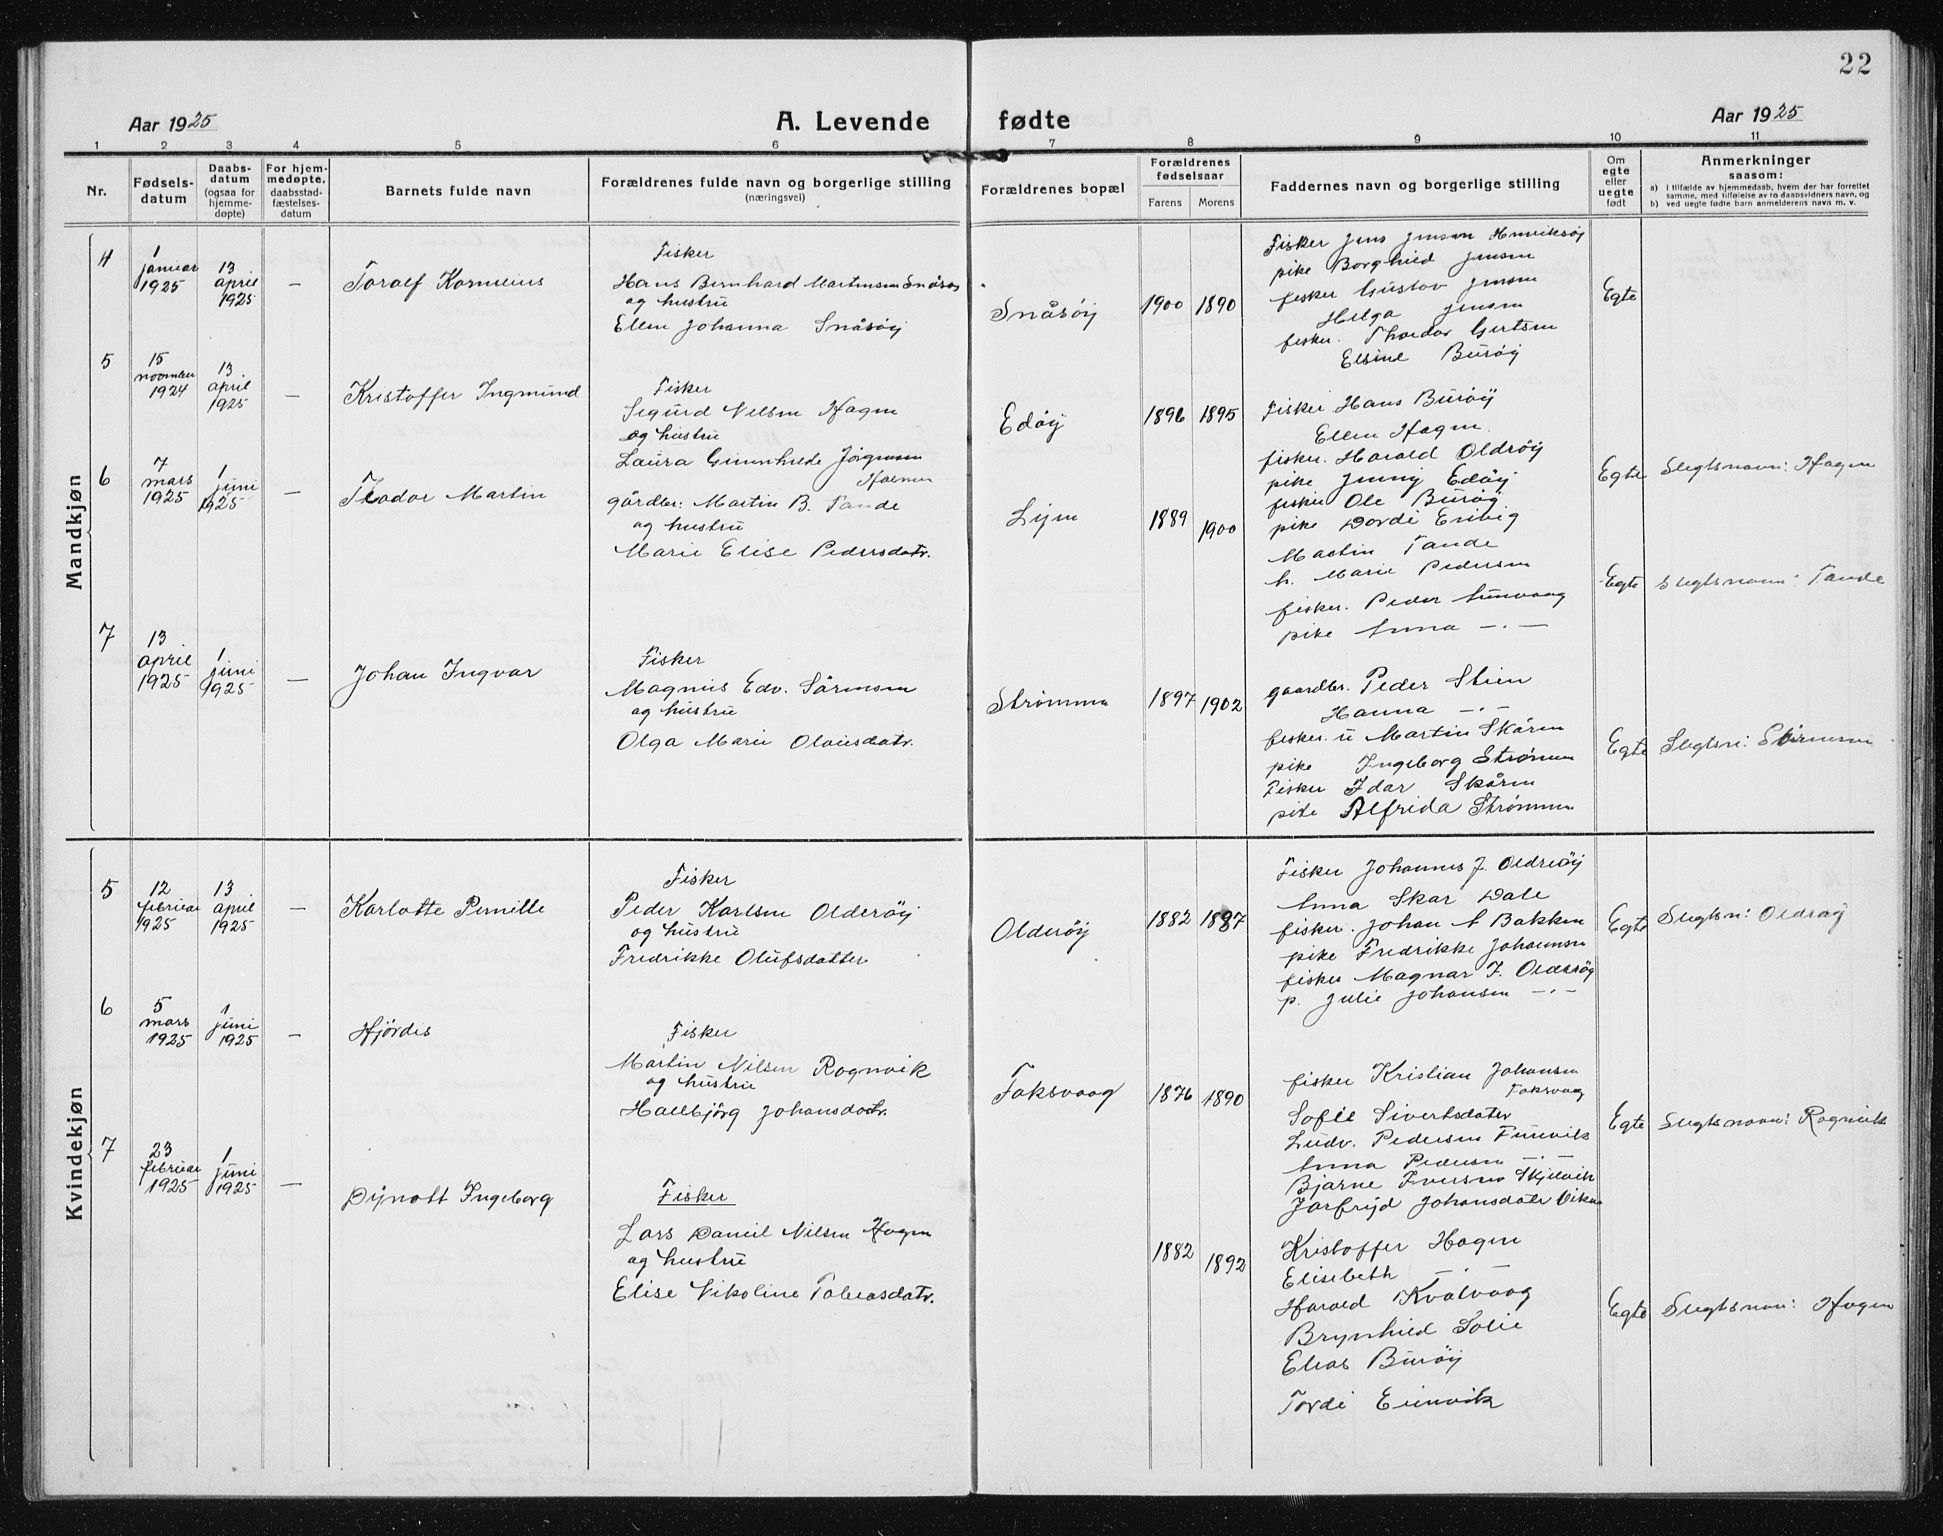 22
Aar 1925
A. Levende
fødte
Aar 1925
1 2 3 4 5 6 7 8 9 10 11
Nr.
Fødsels-
datum
Daabs-
datum
(ogsaa for
hjemme-
døpte)
For hjem-
medøpte,
daabsstad-
fæstelses-
datum
Barnets fulde navn
Forældrenes fulde navn og borgerlige stilling
(næringsvei)
Forældrenes bopæl
Forældrenes
fødselsaar
Farens Morens
Faddernes navn og borgerlige stilling
Om
egte
eller
uegte
født
Anmerkninger
saasom:
a) i tilfælde av hjemmedaab, hvem der har forrettet
samme, med tilføielse av to daabsvidners navn, og
b) ved uegte fødte barn anmelderens navn m. v.
Mandkjøn
4
1
januar
1925
13
april
1925
—
Toralf Kornelius
Fisker
Hans Bernhard Martinsen Snåsøy
og hustru
Ellen Johanna Snåsøy
Snåsøy
1900 1890
Fisker Jens Jensen Henriksøy
pike Borghild Jensen
fisker Gustav Jensen
Helga Jensen
fisker. Thoedor Gertsen
Elsine Burøy
Egte
5
15
november
1924
13
april
1925
—
Kristoffer Ingmund
Fisker
Sigurd Nilsen Hagen
og hustru
Laura Gunnhilde Jørgensen
Holmen
Edøy
1896 1895
Fisker Hans Burøy
Ellen Hagen.
fisker. Harald Oldrøy
pike Jenny Edøy
fisker Ole Burøy
pike Dordi
Egte
Slegtsnavn: Hagen
6
7
mars
1925
1
juni
1925
—
Teodor Martin
gårdbr: Martin B. Tande
og hustru
Marie Elise Pedersdatr.
Lyen
1889 1900
Martin Tande
h. Marie Pedersen
fisker. Peder
pike Anna — . —
Egte
Slegtsnavn: Tande
7
13
april
1925
1
juni
1925
—
Johan Ingvar
Fisker
Magnus Edv. Sørensen
og hustru
Olga Marie Olausdatr.
Strømmen
1897 1902
gaardbr. Peder Stein
Hanna — . —
fisker. u Martin Skåren
pike Ingeborg Strømmen
Fisker Idar Skåren
pike Alfrida Strømmen
Egte
Slegtsn: Sørensen
Kvindekjøn
5
12
februar
1925
13
april
1925
—
Karlotte Pernille
Fisker
Peder Karlsen Olderøy
og hustru
Fredrikke Olufsdatter
Olderøy
1882 1887
Fisker Johannes J. Oldrøy
Anna Skar Dale
fisker. Johan A Bakken
pike Fredrikke Johannsen
fisker Magnar J. Olderøy
p. Julie Johansen — . —
Egte
Slegtsn: Oldrøy
6
5
mars
1925
1
juni
1925
—
Hjördis
Fisker
Martin Nilsen Rognvik
og hustru
Hallbjörg Johansdatr.
Foksvaag
1876 1890
fisker Kristian Johansen
Foksvaag
Sofie Sivertsdater
Ludv. Pedersen
Anna Pedersen — . —
Bjarne Iversen Skjelvik
Jarfryd Johansdater
Egte
Slegtsnavn: Rognvik
7
23
februar
1925
1
juni
1925
—
Dynott Ingeborg
Fisker
Lars Daniel Nilsen Hagen
og hustru
Elise Nikoline Tobiasdatr.
1882 1892
Kristoffer Hagen
Elisebeth — . —
Harald Kvalvaag
Brynhild Solie
Elias Burøy
Tordi
Egte
Slegtsnavn: Hagen